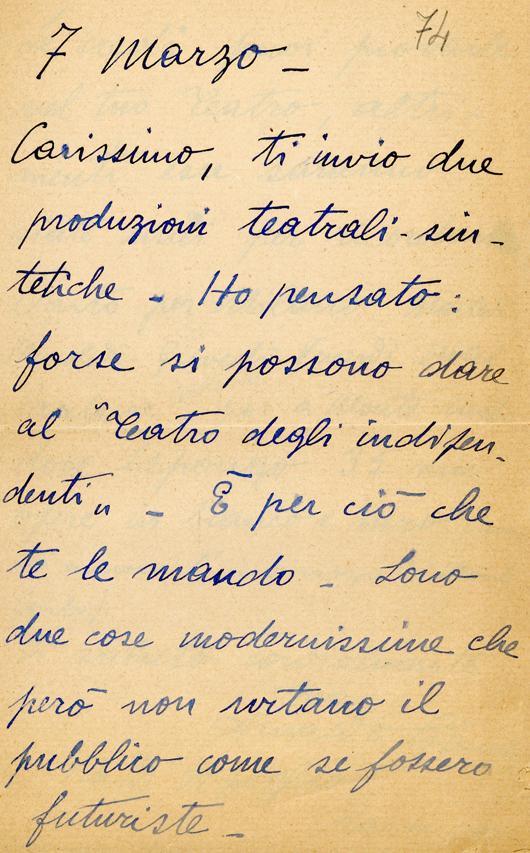 74
7 Marzo -
Carissimo, ti invio due
produzioni teatrali-sin-
tetiche - Ho pensato:
forse si possono dare
al "Teatro degli indipen-
denti" - È per ciò che
te le mando - Sono
due cose modernissime che
però non urtano il
pubblico come se fossero
futuriste -